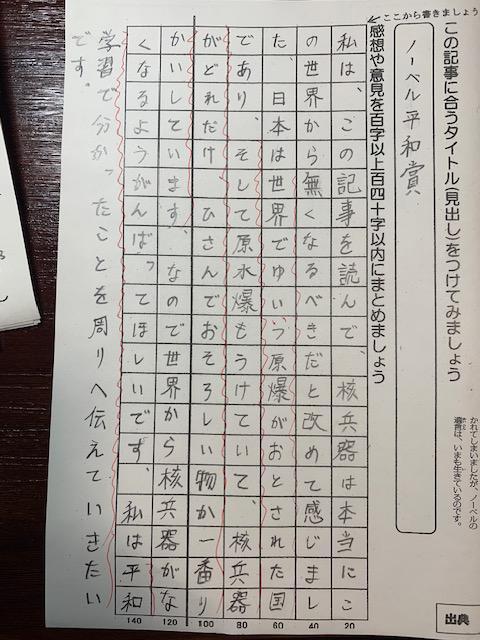 かれてしまいましたが、ノーベルの
遺言は、いまも生きているのです。
出典
この記事に合うタイトル(見出し)をつけてみましょう
ノーベル平和賞
ここから書きましょう
感想や意見を百字以上百四十字以内にまとめましょう
私は、この記事を読んで、核兵器は本当にこ
の世界から無くなるべきだと改めて感じまし
た。日本は世界でゆいつ原爆がおとされた国
であり、そして原水爆もうけていて、核兵器
がどれだけ ひさんでおそろしい物か一番り
かいしています。なので世界から核兵器がな
くなるようがんばってほしいです。私は平和
学習で分かったことを周りへ伝えていきたい
です。
20
40
60
80
100
120
140